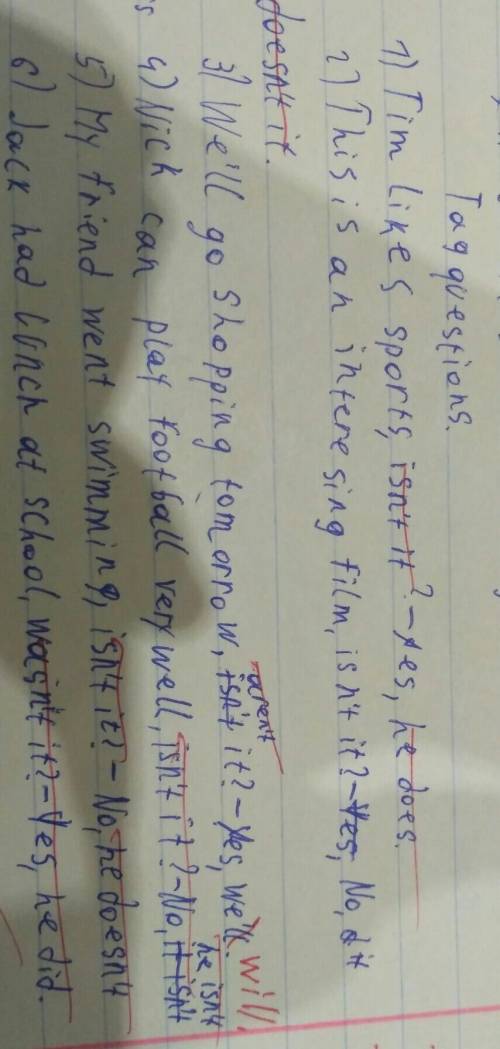 Tag questions.
1) Tim likes sports, isn't it? – Yes, he does.
2) This is an interesing film, isn't it? – Yes, No, it
doesn't it.
3) We'll go shopping tomorrow, isn't it? – Yes, we'll. will,
arent
4) Nick can play football very well, isn't it? – No, it isn't
he isn't
5) My friend went swimming, isn't it? – No, he doesn't
6) Jack had lunch at school, wasn't it? – Yes, he did.